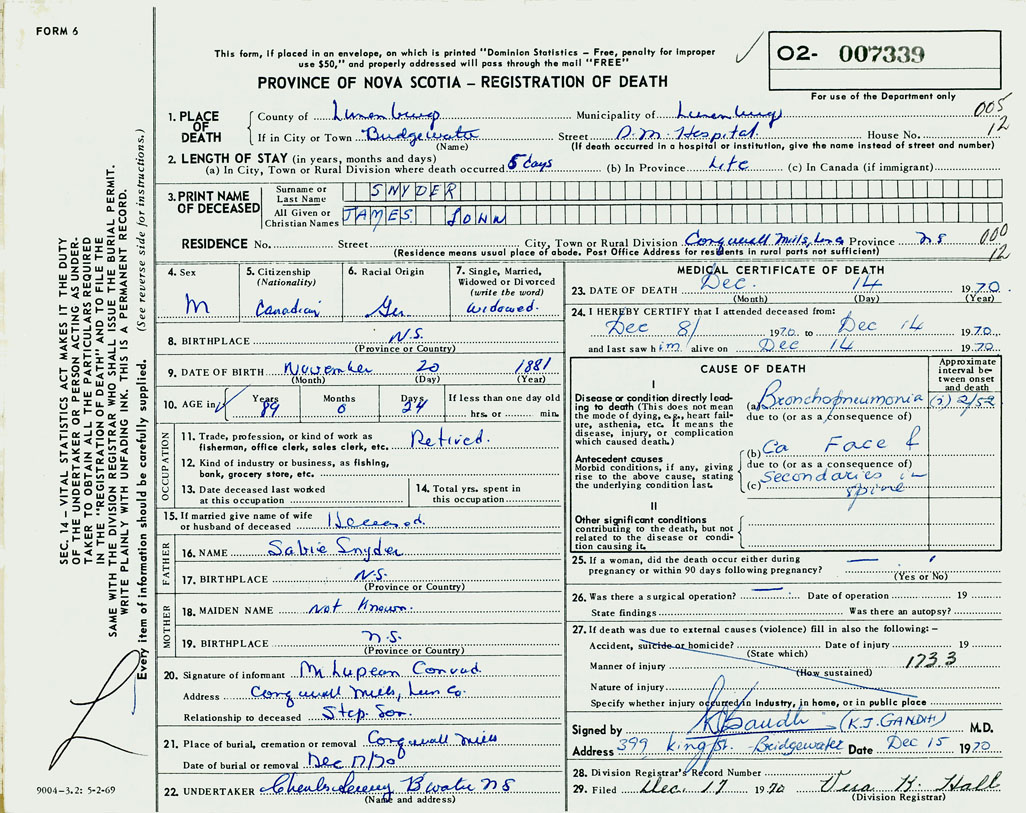 FORM 6
This form, if placed in an envelope, on which is printed "Dominion Statistics – Free, penalty for improper
use $50," and properly addressed will pass through the mail "FREE"
PROVINCE OF NOVA SCOTIA – REGISTRATION OF DEATH
02- 007339
For use of the Department only
005
12
1. PLACE OF DEATH
County of Lunenburg Municipality of Lunenburg
If in City or Town Bridgewater Street D.M. Hospital House No.
(Name) (If death occurred in a hospital or institution, give the name instead of street and number)
2. LENGTH OF STAY (in years, months and days)
(a) In City, Town or Rural Division where death occurred 5 days (b) In Province Life (c) In Canada (if immigrant)
3. PRINT NAME OF DECEASED
Surname or Last Name SNYDER
All Given or Christian Names JAMES JOHN
RESIDENCE No. Street City, Town or Rural Division Conquerall Mills, Province NS
000
12
(Residence means usual place of abode. Post Office Address for residents in rural parts not sufficient)
SEC. 14 – VITAL STATISTICS ACT MAKES IT THE DUTY
OF THE UNDERTAKER OR PERSON ACTING AS UNDER-
TAKER TO OBTAIN ALL THE PARTICULARS REQUIRED
IN THE "REGISTRATION OF DEATH" AND TO FILE THE
SAME WITH THE DIVISION REGISTRAR WHO SHALL ISSUE THE BURIAL PERMIT.
WRITE PLAINLY WITH UNFADING INK. THIS IS A PERMANENT RECORD.
Every item of information should be carefully supplied. (See reverse side for instructions.)
4. Sex
M
5. Citizenship
(Nationality)
Canadian
6. Racial Origin
Ger
7. Single, Married,
Widowed or Divorced
(write the word)
Widowed.
8. BIRTHPLACE N.S.
(Province or Country)
9. DATE OF BIRTH November 20 1881
(Month) (Day) (Year)
10. AGE in Years 89 Months 0 Days 24 If less than one day old
hrs. or min.
OCCUPATION
11. Trade, profession, or kind of work as
fisherman, office clerk, sales clerk, etc. Retired.
12. Kind of industry or business, as fishing,
bank, grocery store, etc.
13. Date deceased last worked
at this occupation
14. Total yrs. spent in
this occupation
15. If married give name of wife
or husband of deceased
FATHER
16. NAME Snyder
17. BIRTHPLACE N.S.
(Province or Country)
MOTHER
18. MAIDEN NAME Not Known.
19. BIRTHPLACE N.S.
(Province or Country)
20. Signature of informant M Conrad
Address Conquerall Mills, Lun Co.
Relationship to deceased Step Son.
21. Place of burial, cremation or removal Conquerall Mills
Date of burial or removal Dec 17/70
22. UNDERTAKER B'water NS
(Name and address)
9004–3.2: 5-2-69
MEDICAL CERTIFICATE OF DEATH
23. DATE OF DEATH Dec. 14 1970.
(Month) (Day) (Year)
24. I HEREBY CERTIFY that I attended deceased from:
Dec 8/ 1970 to Dec 14 1970.
and last saw him alive on Dec 14 1970
CAUSE OF DEATH
Approximate
interval be-
tween onset
and death
I
Disease or condition directly lead-
ing to death (This does not
mean the mode of dying, e.g., heart fail-
ure, asthenia, etc. It means the
disease, injury, or complication
which caused death.)
(a) Bronchopneumonia (?) 2/52
due to (or as a consequence of)
Antecedent causes
Morbid conditions, if any, giving
rise to the above cause, stating
the underlying condition last.
(b) Ca Face &
due to (or as a consequence of)
(c) secondaries in
spine
II
Other significant conditions
contributing to the death, but not
related to the disease or condi-
tion causing it.
25. If a woman, did the death occur either during
pregnancy or within 90 days following pregnancy? —
(Yes or No)
26. Was there a surgical operation? — Date of operation 19
State findings Was there an autopsy?
27. If death was due to external causes (violence) fill in also the following: –
Accident, suicide or homicide? Date of injury 19
(State which)
Manner of injury 1733
(How sustained)
Nature of injury
Specify whether injury occurred in industry, in home, or in public place
Signed by KJGandhi (K.J. GANDHI) M.D.
Address 399 King St. Bridgewater Date Dec 15 1970
28. Division Registrar's Record Number
29. Filed Dec. 17 1970 Vera K. Hall
(Division Registrar)